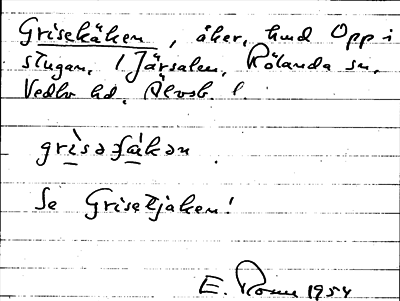 Grisekäken, åker, hmd Opp i
stugan, 1 Järsalen, Rölanda sn,
Vedbo hd, Älvsb. l.
grìsəʃákən
Se Grisetjaken!
E. 1954